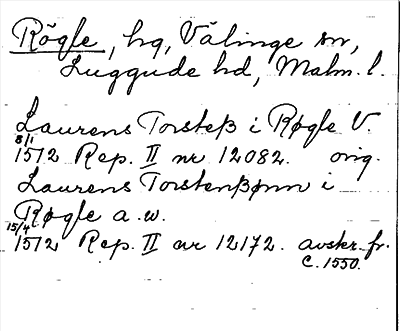 Rögle, hg, Välinge sn,
Luggude hd, Malm. l.
Laurens Torsteß i Røgle V.
8/1
1512 Rep. II nr 12082. orig.
Laurens Torstenßønn i
Røgle a. w.
15/4
1512 Rep. II nr 12172. avskr. fr.
c. 1550.